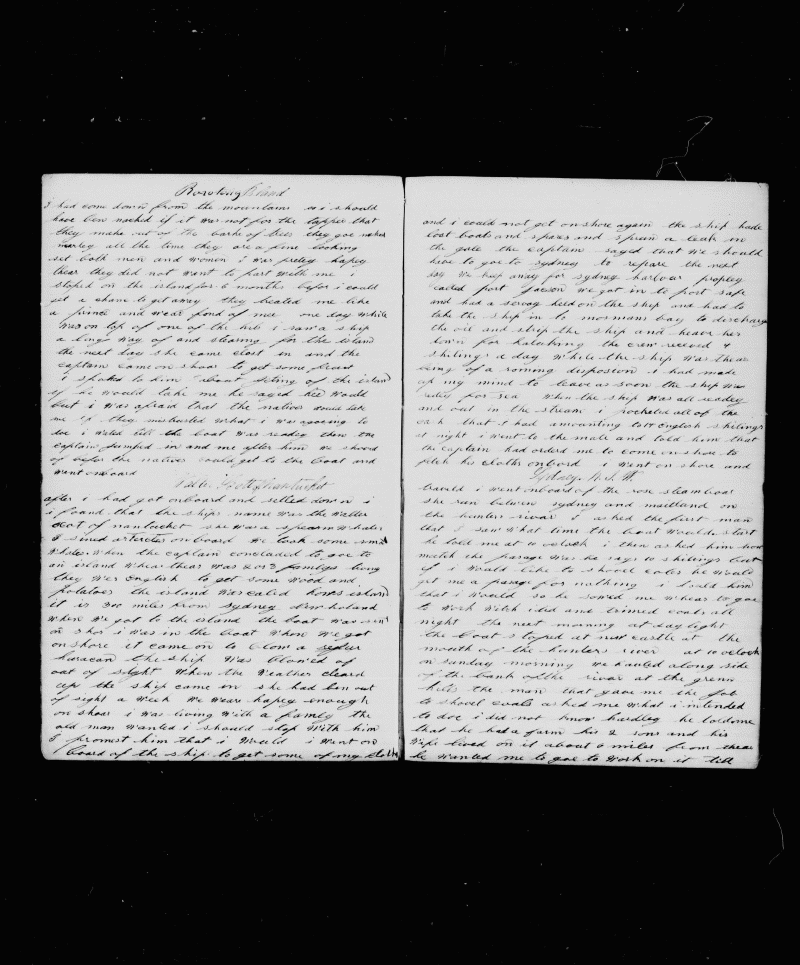 Rarotong Island
I had come down from the mountains so i should
have ben naked if it was not for the tapper that
they make out of the barke of trees they goe naked
mereley all the time they are a fine looking
set both men and women I was pretey hapey
thear they did not want to part with me i
stoped on the island for 6 months befor i could
get a chane to get away they treated me like
a prince and wear fond of mee one day while
i was on top of one of the hils i saw a ship
a long way of and stearing for the island
the next day she came clost in and the
captain came on shoar to get some fruit
i spoked to him about geting of the island
if he would take me he sayed hee would
but i was afraid that the natives would take
me if they mistrusted what i was agoeing to
doe i wated till the boat was readey then the
captain jumped in and me after him we shoved
of befor the natives could get to the boat and
went onboard
Walter Scott of Nantucket
after i had got onboard and setled down i
i found that the ships name was the Walter
Scot of nantucket she was a sperm whaler
I sined articles onboard we took some
Whales. When the captain concluded to goe to
an island whear thear was 2 or 3 familys living
they wer English to get some wood and
potatoes the island was caled hows island
it is 300 miles from Sydney new holand
When we got to the island the boat was sent
on shor i was in the boat When we got
onshore it came on to blow a
haracan the ship was blowed of
out of sight When the weather cleard
up the ship came in she had ben out
of sight a week we wear hapey enough
on shoar i was living with a famley the
old man wanted i should stop with him
I promest him that i would i went on
board of the ship to get some of my cloths
and i could not get on shore again the ship hade
lost boats and spars and sprun a leak in
the gale the captain sayed that we should
have to goe to Sydney to repare the next
day we keep away for sydney harbour propley
caled port Jacson we got in to port safe
and had a servay held on the ship and had to
take the ship in to mosmans bay to discharge
the oil and strip the ship and heave her
down for kalabring the crew received 4
shilings a day while the ship was thear
being of a roming disposition i had made
up my mind to leave as soon the ship was
redey for sea When the ship was all readey
and out in the stream i pocketed all of the
cash that i had amounting to 14 English shilings
at night i went to the mate and told him that
the captain had orderd me to come on shore to
fetch his cloths onbord i went on shore and
Sydney. N. S. W.
traveld i went onboard of the rose steamboat
she run between sydney and maitland on
the hunters rivar I asked the first man
that i saw what time the boat would start
he told me at 10 oclock i then asked him how
mutch the parsage was he says 10 shilings but
if i would like to shovel coles he would
get me a parsage for nothing i told him
that i would so he sowed me whear to goe
to work witch i did and trimed coals all
night the next morning at day light
the boat stoped at new castle at the
mouth of the hunters river at 10 oclock
on sunday morning we hauled along side
of the bank of the rivar at the green
hills the man that gave me the job
to shovel coals asked me what i intended
to doe i did not know hardley he told me
that he had a farm his 2 sons and his
Wife lived on it about 6 miles from thear
he wanted me to goe to work on it till